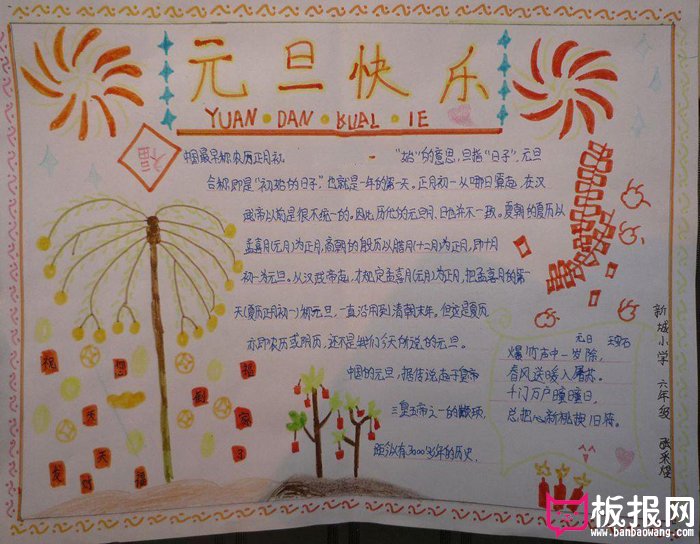 元旦快乐
YUAN·DAN·KUAL·IE
福
中国最早称农历正月初 "始"的意思,旦指"日子",元旦
合称即是"初始的日子",也就是一年的第一天。正月初一从哪日算起,在汉
武帝以前是很不统一的。因此,历代的元旦月、日也并不一致。夏朝的夏历以
孟喜月(元月)为正月,商朝的殷历以腊月(十二月)为正月,即十月
初一为元旦。从汉武帝起,才规定孟喜月(元月)为正月,把孟喜月的第一
天(夏历正月初一)称元旦,一直沿用到清朝末年。但这是夏历,
亦即农历或阴历,还不是我们今天所说的元旦。
中国的元旦,据传说起于皇帝
三皇五帝之一的颛顼,
距今有3000多年的历史。
元日 王安石
爆竹声中一岁除,
春风送暖入屠苏。
千门万户曈曈日,
总把新桃换旧符。
新城小学 六年级
祝 您 福
秀 到 家
发 天 福 了
板报网
www.banbaowang.com